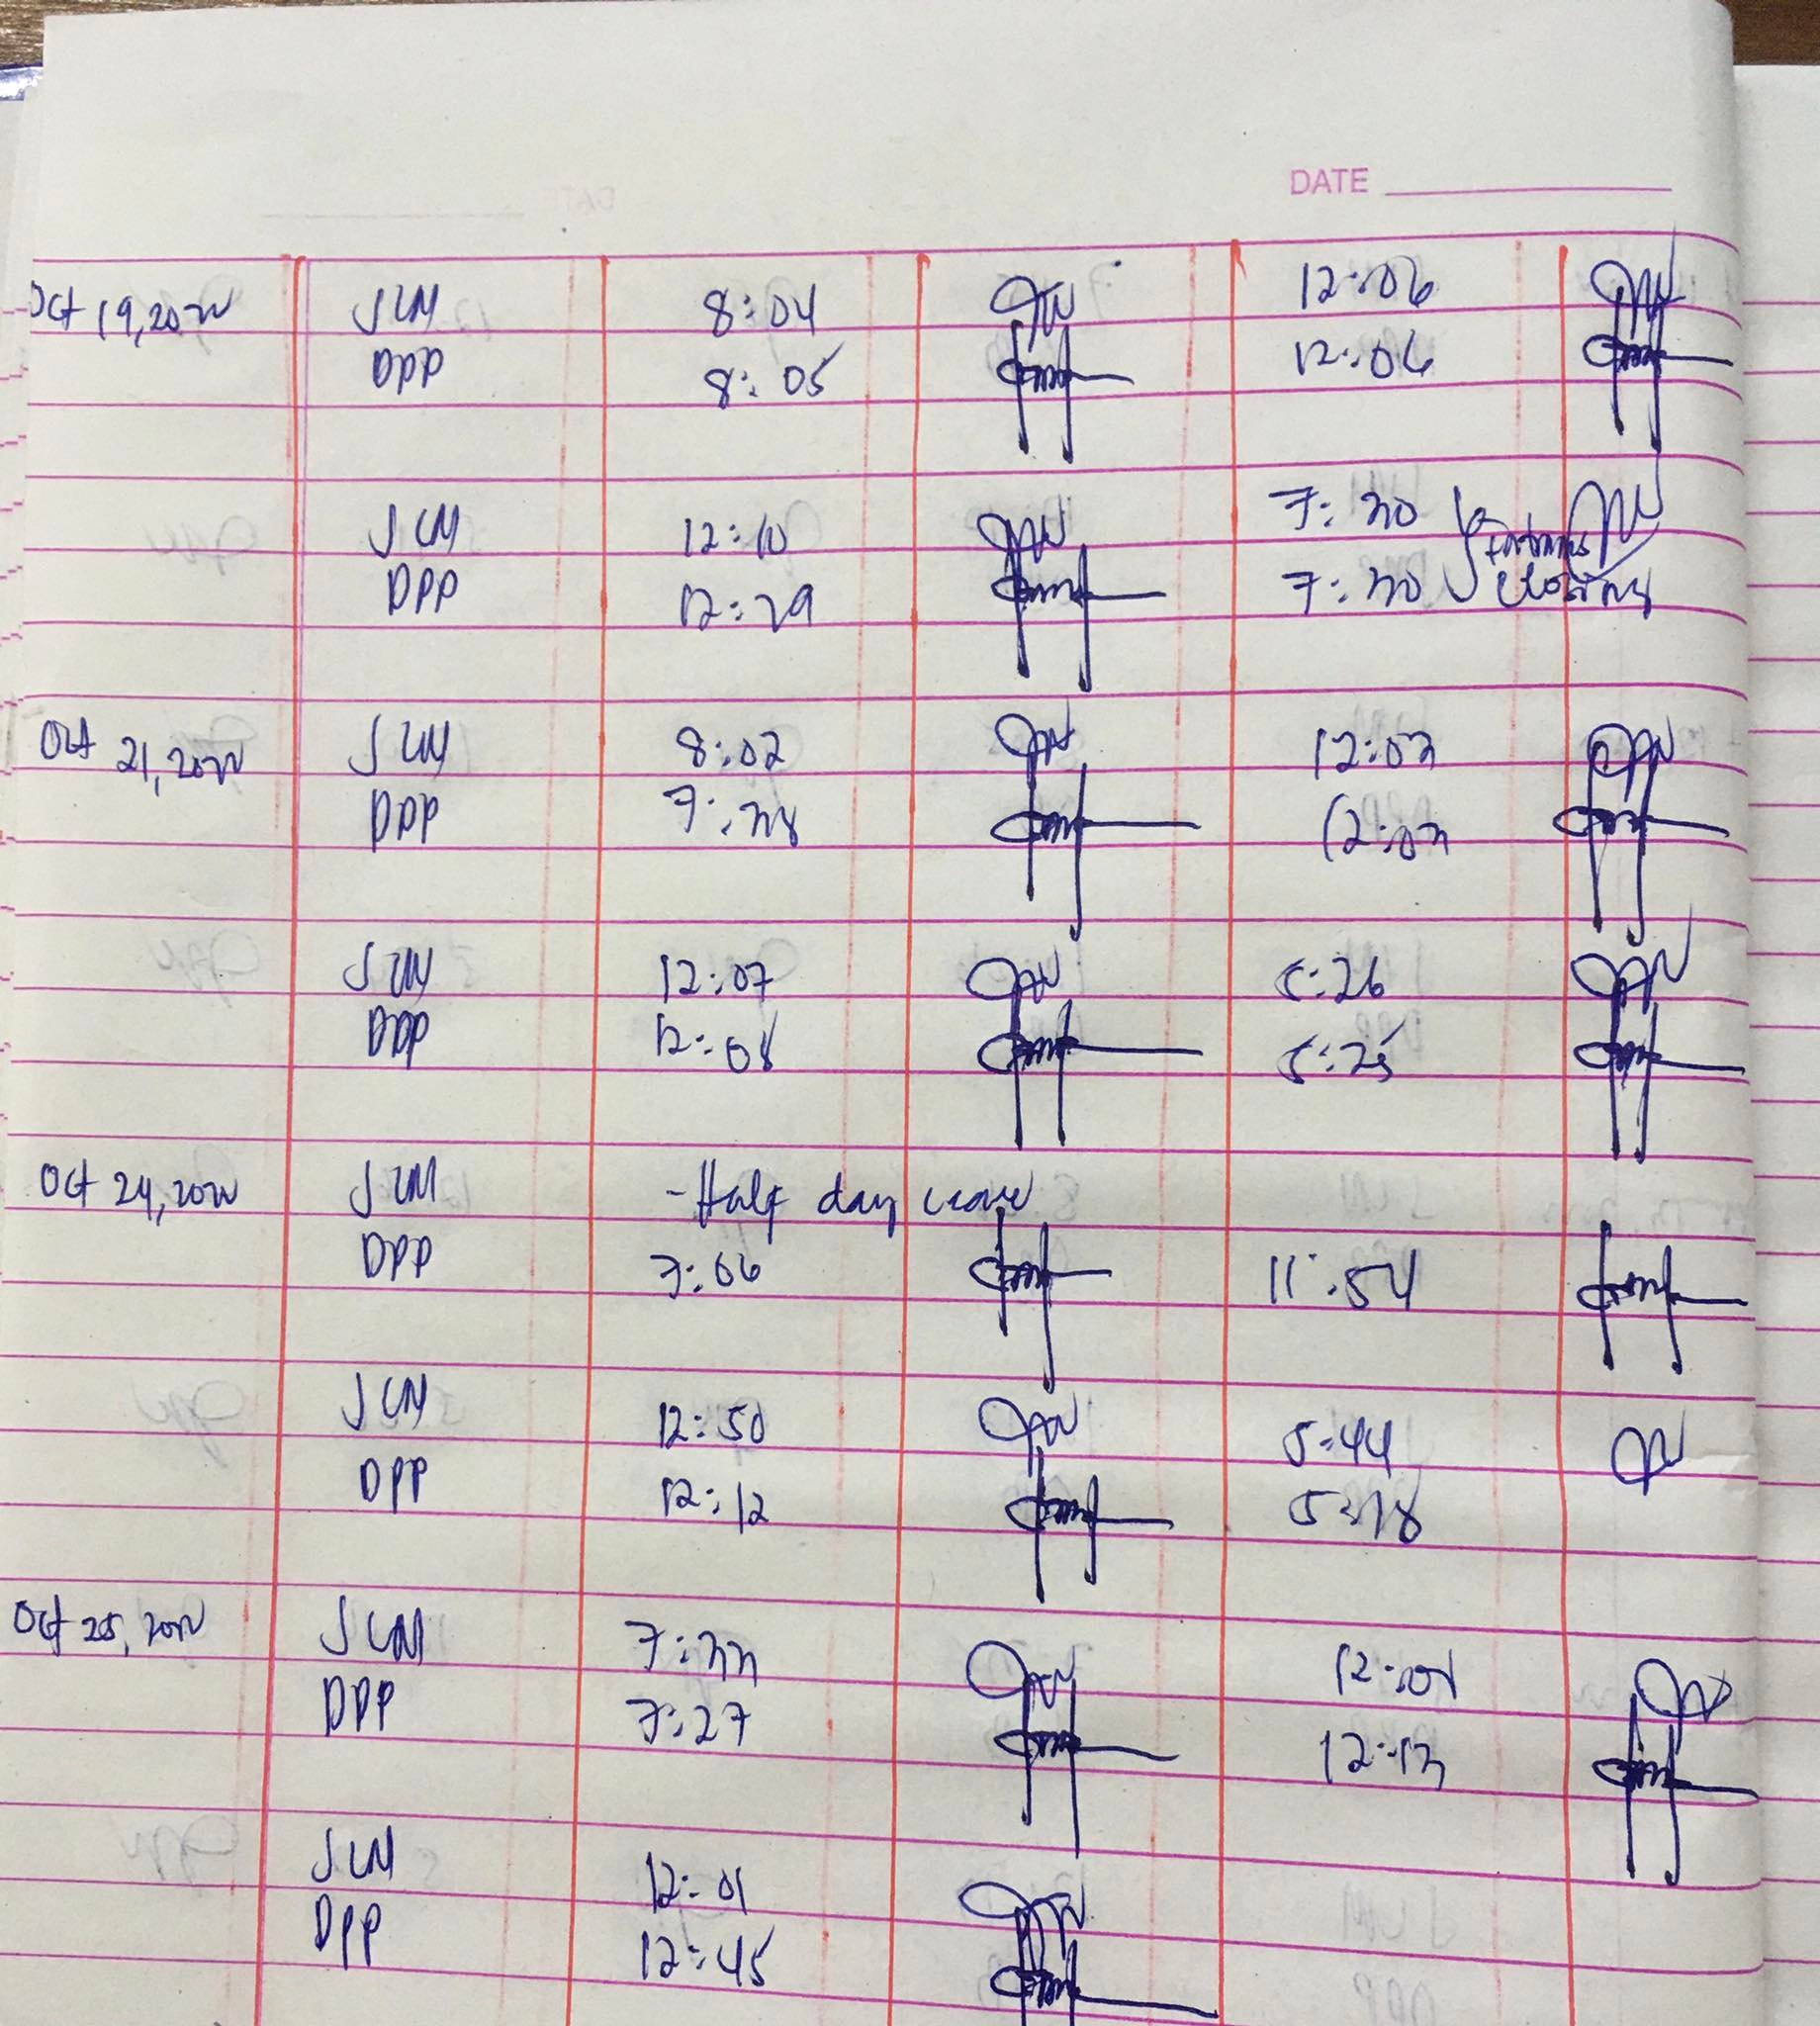 DATE
Oct 19, 2022 JLM 8:04 12:06
DPP 8:05 12:06
JLM 12:10 7:30
DPP 12:29 7:30 closing
Oct 21, 2022 JLM 8:02 12:03
DPP 7:38 12:03
JLM 12:07 5:26
DPP 12:08 5:25
Oct 24, 2022 JLM - Half day leave
DPP 7:06 11:54
JLM 12:50 5:44
DPP 12:12 5:38
Oct 25, 2022 JLM 7:33
DPP 7:27 12:13
JLM 12:01
DPP 12:45